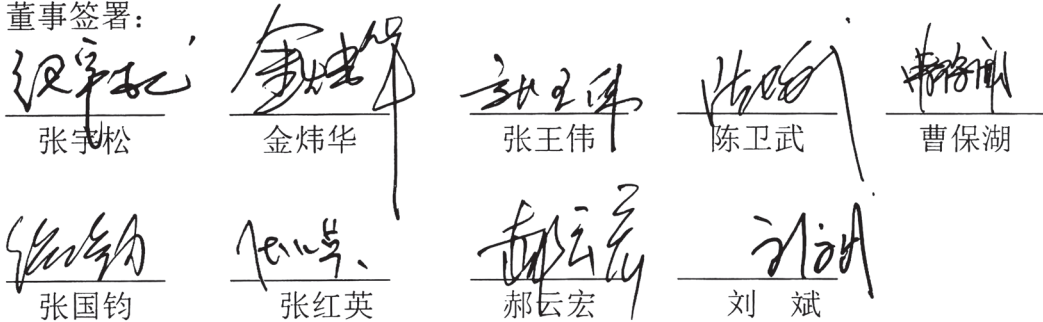 董事签署：
张宇松 金炜华 张王伟 陈卫武 曹保湖
张国钧 张红英 郝云宏 刘 斌